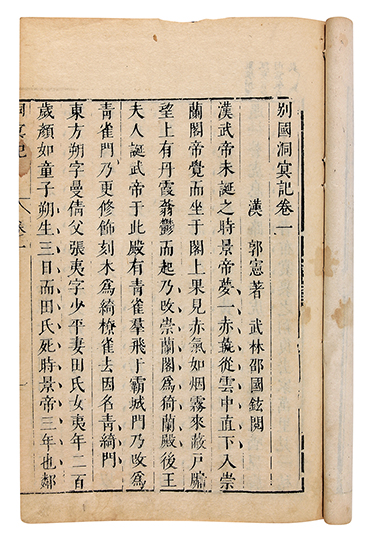 別國洞㝠記卷一
漢 郭憲著 武林邵國鉉閱
漢武帝未誕之時景帝夢一赤彘從雲中直下入崇
蘭閣帝覺而坐于閣上果見赤氣如烟霧來蔽戶牖
望上有丹霞蓊鬱而起乃改崇蘭閣爲猗蘭殿後王
夫人誕武帝于此殿有青雀羣飛于霸城門乃改爲
青雀門乃更修飾刻木爲綺橑雀去因名青綺門
東方朔字曼倩父張夷字少平妻田氏女夷年二百
歲顏如童子朔生三日而田氏死時景帝三年也鄰
洞㝠記 卷一